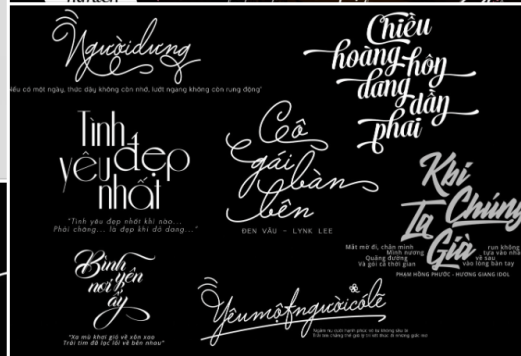 Người dưng
có một ngày, thức dậy không còn nhớ, lướt ngang không còn rung động"
Chiều
hoàng hôn
đang dần
phai
Tình
yêu đẹp
nhất
"Tình yêu đẹp nhất khi nào...
Phải chăng... là đẹp khi dở dang..."
Cô
gái bàn
bên
ĐEN VÂU - LYNK LEE
Khi
Ta Chúng
Già
Mắt mờ đi, chân mình run không
Mình nương tựa vào nhau
Quãng đường về sau
Và gói cả thời gian vào lòng bàn tay
PHẠM HỒNG PHƯỚC - HƯƠNG GIANG IDOL
Bình
yên
nơi
ấy
"Xa mù khơi gió về vẫn xoa
Trái tim đã lạc lối về bên nhau"
Yêu một người có lẽ